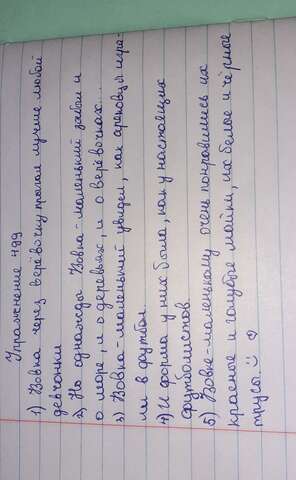 Упражнение 499
1) Вовка через верёвочку прыгал лучше любой
девчонки
2) Но однажды Вовка-маленький забыл и
о море, и о деревьях, и о верёвочках...
3) Вовка-маленький увидел, как ореховцы игра-
ли в футбол.
4) И форма у них была, как у настоящих
футболистов
5) Вовке-маленькому очень понравились их
красные и голубые майки, их белые и чёрные
трусы.